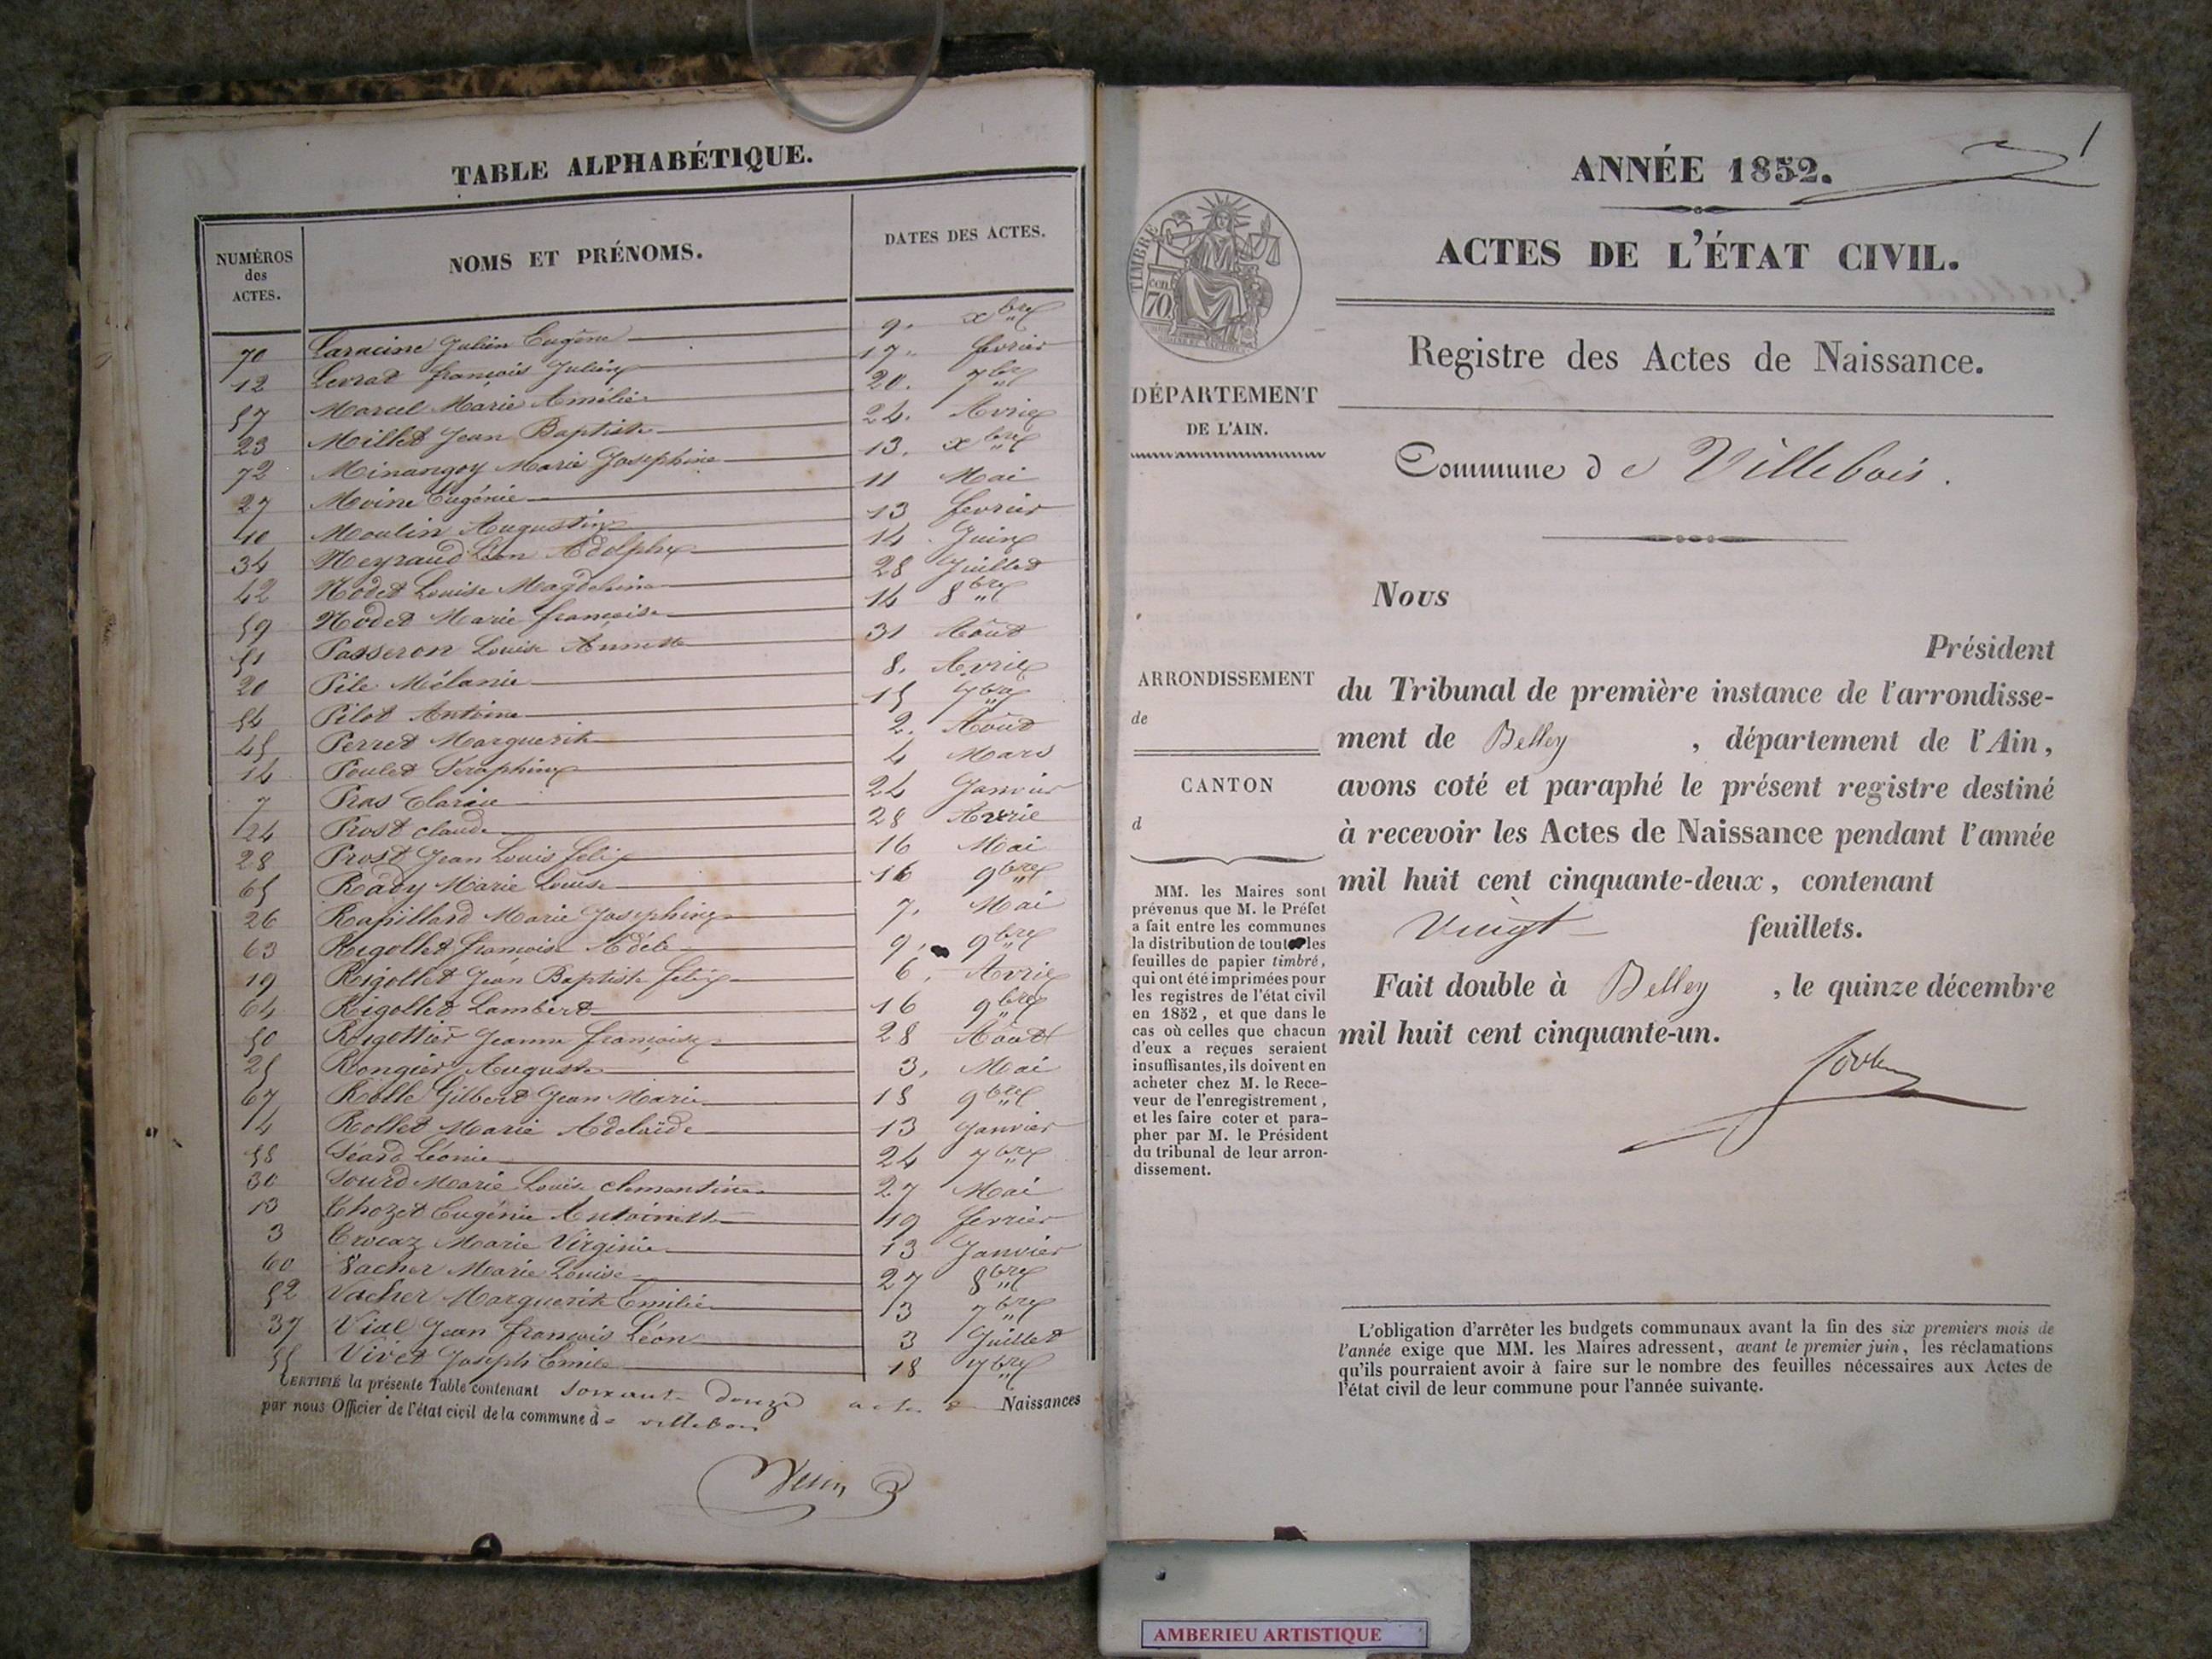 TABLE ALPHABÉTIQUE.
NUMÉROS des ACTES. NOMS ET PRÉNOMS. DATES DES ACTES.
70 Laracine Julien Eugène 9. xbre
12 Levrat françois Julien 17. fevrier
57 Marcel Marie Amélie 20. 7bre
23 Millet Jean Baptiste 24. Avril
72 Minangoy Marie Josephine 13. xbre
27 Moine Eugénie 11 Mai
10 Moulin Augustin 13 fevrier
34 Neyraud Léon Adolphe 14. Juin
42 Nodet Louise Magdeleine 28 Juillet
59 Nodet Marie françoise 14 8bre
51 Passeron Louise Annette 31 Août
20 Pile Mélanie 8. Avril
54 Pilot Antoine 15 7bre
45 Perret Marguerite 2. Août
14 Poulet Seraphine 4 Mars
7 Pras Clarice 24 Janvier
24 Prost claude 28 Avril
28 Prost Jean Louis felix 16 Mai
65 Rady Marie Louise 16 9bre
26 Rapillard Marie Josephine 7. Mai
63 Rigollet françoise Adèle 9. 9bre
19 Rigollet Jean Baptiste felix 6. Avril
64 Rigollet Lambert 16 9bre
50 Rigottier Jeanne françoise 28 Août
25 Rongier Auguste 3. Mai
67 Rolle Gilbert Jean Marie 18 9bre
4 Rollet Marie Adelaïde 13 Janvier
58 Séard Léonie 24 7bre
30 Sourd Marie Louise clemantine 27 Mai
13 Thozet Eugénie Antoinette 19 fevrier
3 Trocaz Marie Virginie 13 Janvier
60 Vacher Marie Louise 27 8bre
52 Vacher Marguerite Emilie 13 7bre
37 Vial Jean françois Léon 3 Juillet
55 Vivet Joseph Emile 18 7bre
CERTIFIÉ la présente Table contenant soixante Douze actes de Naissances
par nous Officier de l'état civil de la commune de villebois
1
ANNÉE 1852.
ACTES DE L'ÉTAT CIVIL.
Registre des Actes de Naissance.
Commune de Villebois.
TIMBRE
cen. 70
DÉPARTEMENT
DE L'AIN.
ARRONDISSEMENT
de
CANTON
d
MM. les Maires sont
prévenus que M. le Préfet
a fait entre les communes
la distribution de toutes les
feuilles de papier timbré,
qui ont été imprimées pour
les registres de l'état civil
en 1852, et que dans le
cas où celles que chacun
d'eux a reçues seraient
insuffisantes, ils doivent en
acheter chez M. le Rece-
veur de l'enregistrement,
et les faire coter et para-
pher par M. le Président
du tribunal de leur arron-
dissement.
Nous
Président
du Tribunal de première instance de l'arrondisse-
ment de Belley, département de l'Ain,
avons coté et paraphé le présent registre destiné
à recevoir les Actes de Naissance pendant l'année
mil huit cent cinquante-deux, contenant
Vingt feuillets.
Fait double à Belley, le quinze décembre
mil huit cent cinquante-un.
L'obligation d'arrêter les budgets communaux avant la fin des six premiers mois de
l'année exige que MM. les Maires adressent, avant le premier juin, les réclamations
qu'ils pourraient avoir à faire sur le nombre des feuilles nécessaires aux Actes de
l'état civil de leur commune pour l'année suivante.
AMBERIEU ARTISTIQUE